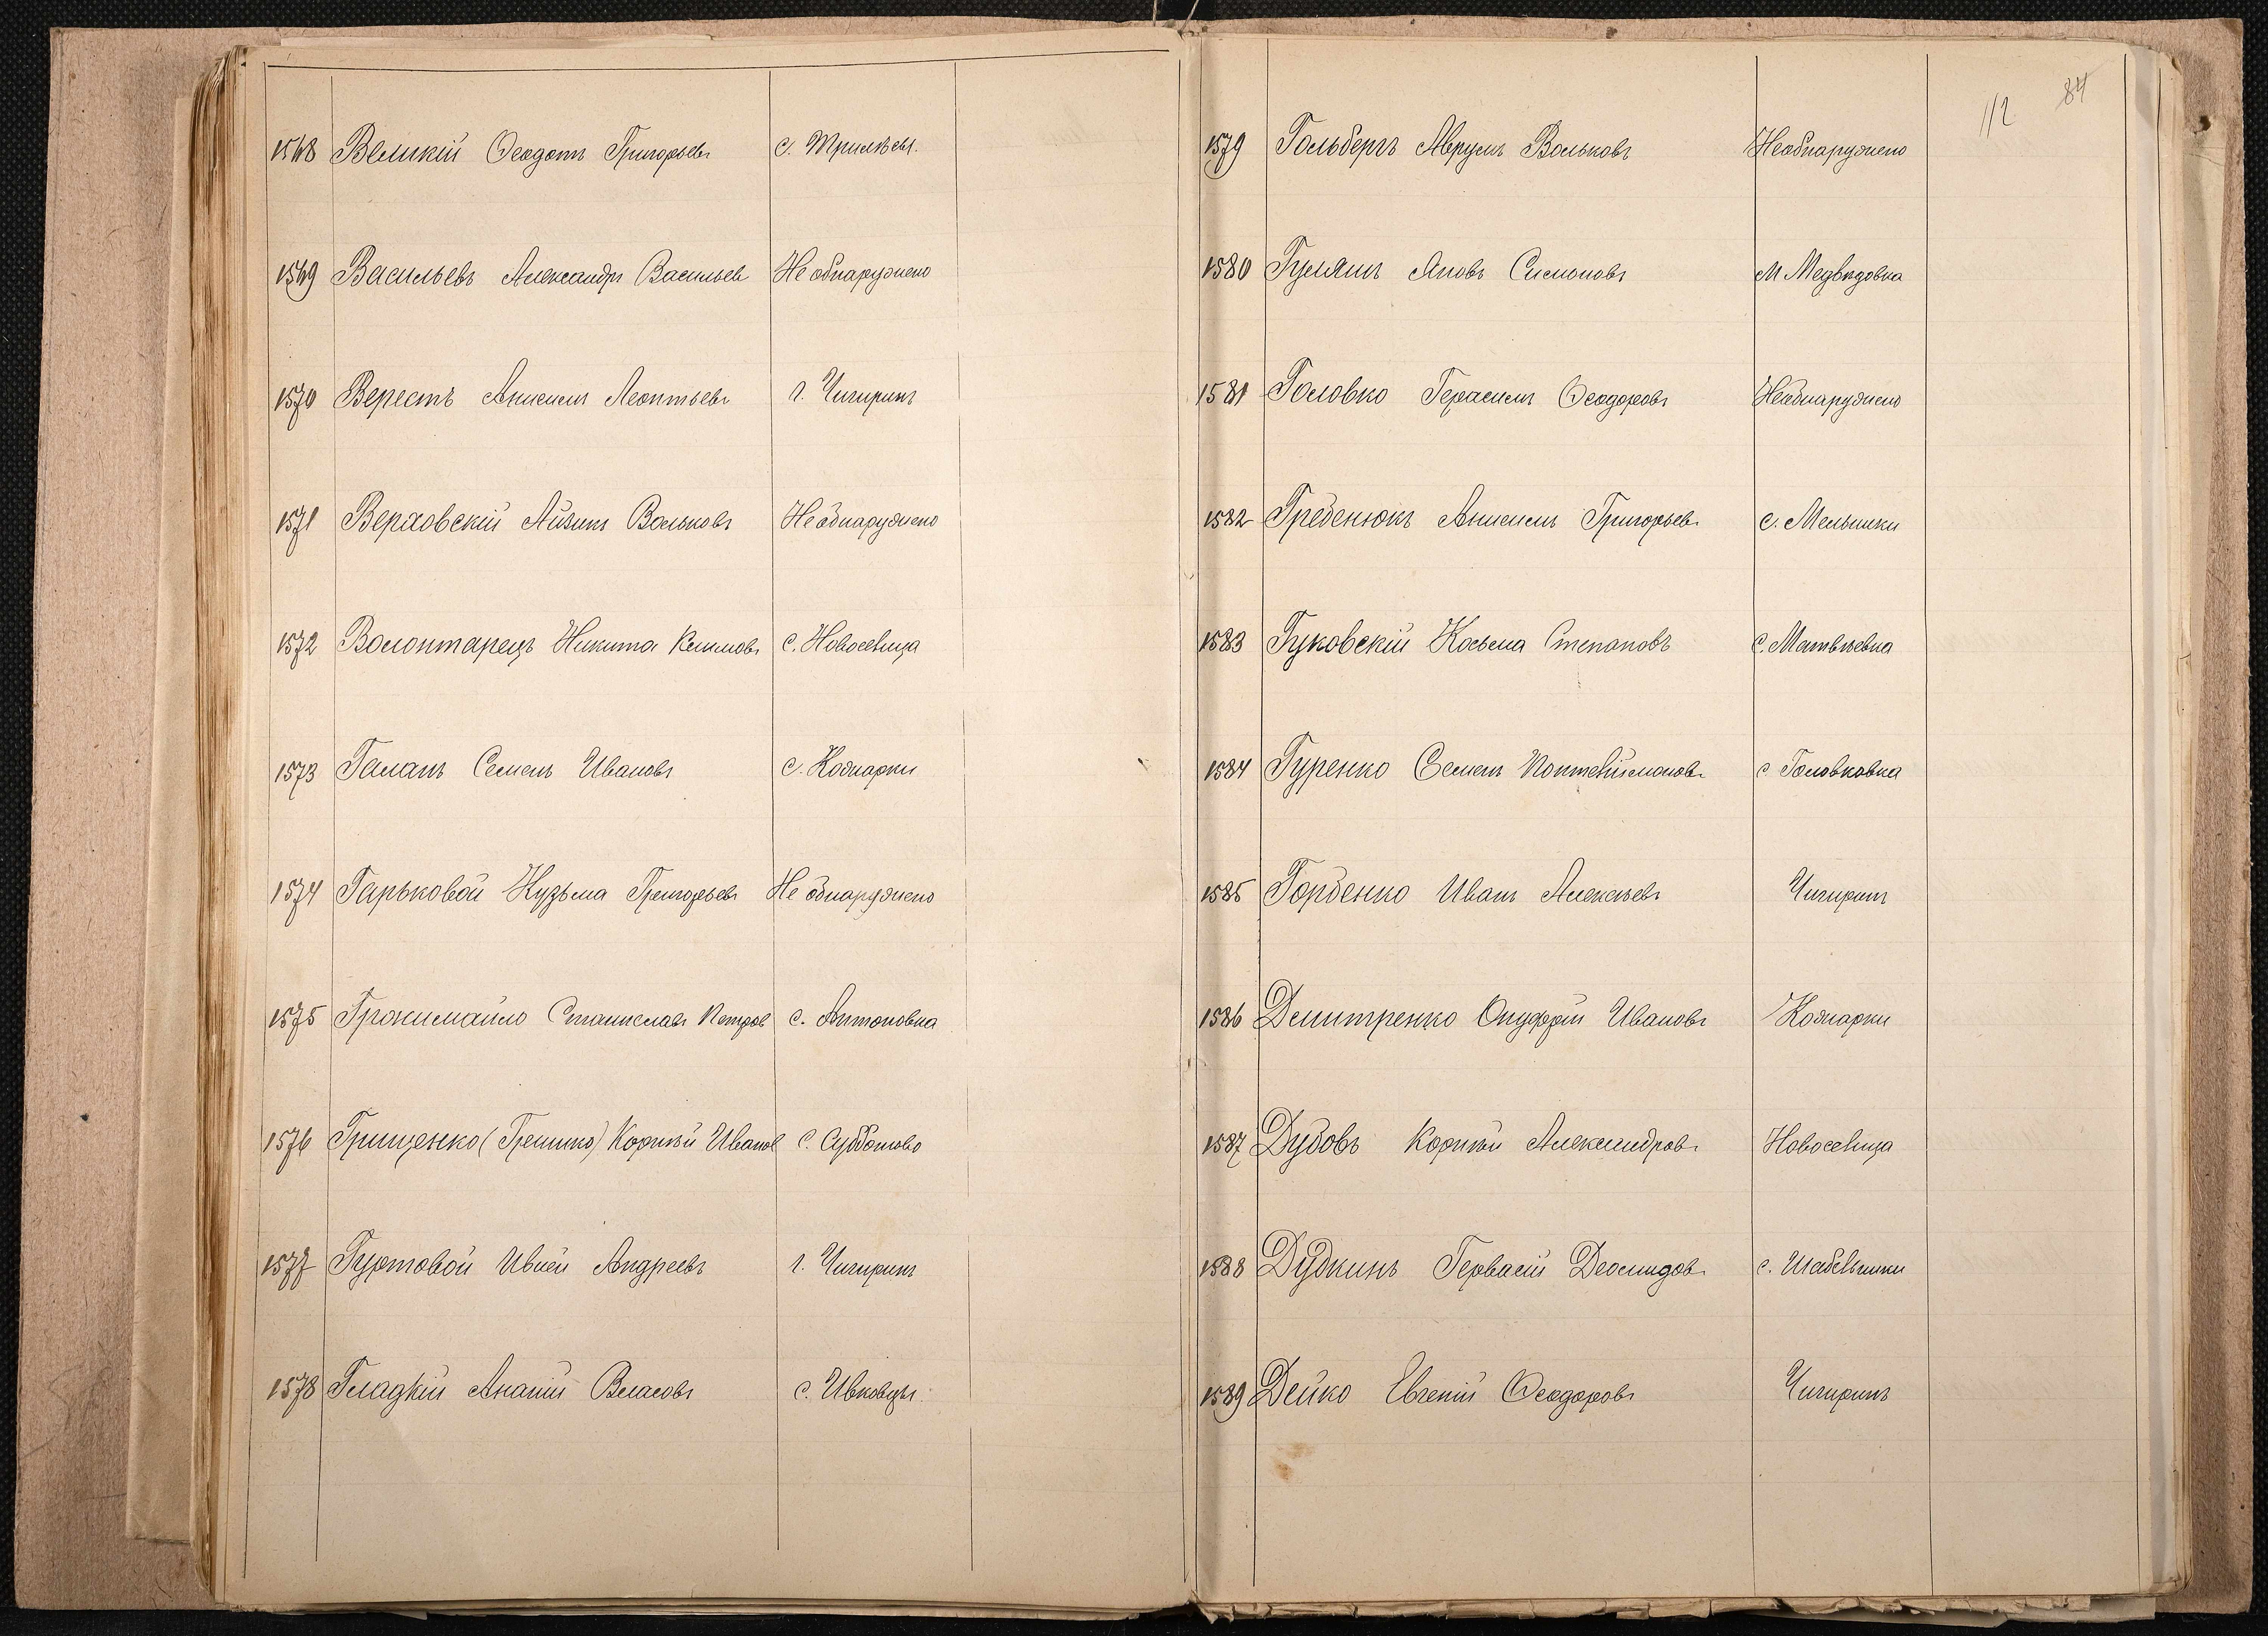 1568 Великій Ѳеодотъ Григорьевъ с. Трилѣсы.
1569 Васильевъ Александръ Васильев Не обнаружено
1570 Верестъ Анисимъ Леонтьевъ г. Чигиринъ
1571 Верховскій Айзикъ Вольковъ Не обнаружено
1572 Волонтарецъ Никита Климовъ с. Новоселица
1573 Галанъ Семенъ Ивановъ с. Кожарки
1574 Гарьковой Кузьма Григорьевъ Не обнаружено
1575 Громимайло Станиславъ Петров с. Антоновка
1576 Грищенко (Гришко) Корній Иванов с. Субботово
1577 Гуртовой Ивлей Андреевъ г. Чигиринъ
1578 Гладкій Ананій Власовъ с. Ивковцы.
112 84
1579 Гольбергъ Аврумъ Вольковъ Необнаружено
1580 Яковъ Симоновъ М Медвѣдовка
1581 Головко Герасимъ Ѳеодоровъ Необнаружено
1582 Гребенюкъ Анисимъ Григорьевъ с. Мельники
1583 Гуковскій Косьма Степановъ с. Матвѣевка
1584 Гуренко Семенъ Пантелеймоновъ с Головковка
1585 Горбенко Иванъ Алексѣевъ Чигиринъ
1586 Дмитренко Онуфрій Ивановъ Кожарки
1587 Дубовъ Корній Александровъ Новоселица
1588 Дудкинъ Гервасій Деомидовъ с. Шабельники
1589 Дейко Евгеній Ѳеодоровъ Чигиринъ